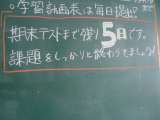 。学習計画表は毎日提出
期末テストまで残り5日です。
課題をしっかりと終わらせましょう!